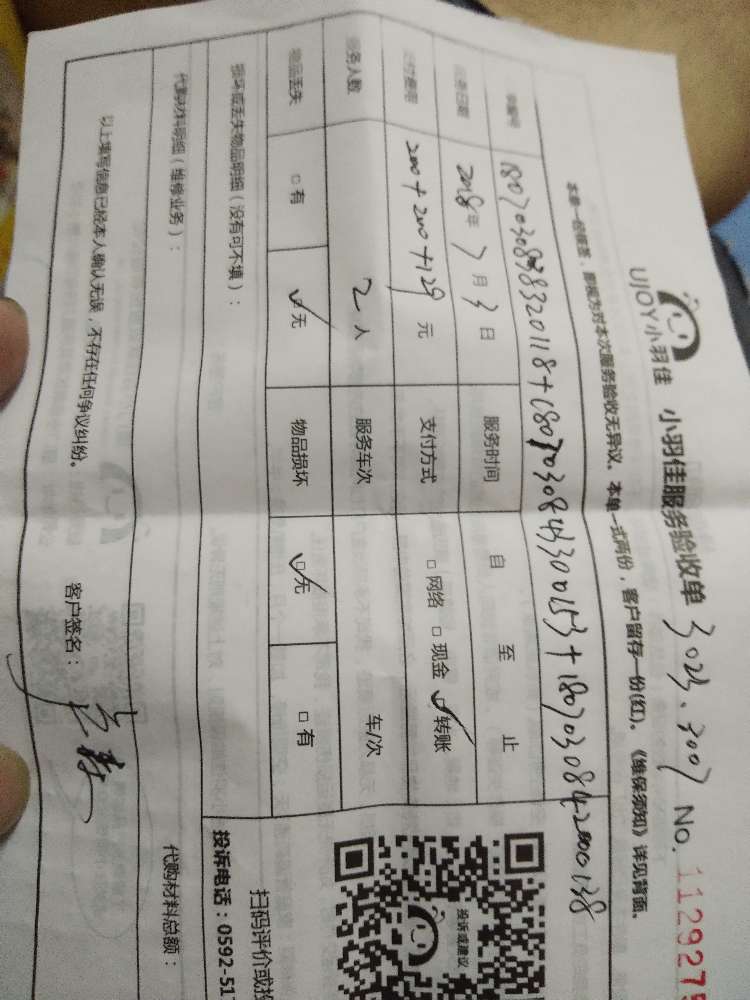 UJOY小羽佳 小羽佳服务验收单 3023、3007 No. 1129275
本单一经签签，即视为对本次服务验收无异议。本单一式两份，客户留存一份(红)。《维保须知》详见背面。
服务日期 2018年7月3日 服务时间 自 至 止
支付费用 200+200+129元 支付方式 □网络 □现金 ☑转账
服务人数 2人 服务车次 车/次
物品丢失 □有 ☑无 物品损坏 ☑无 □有
损坏或丢失物品明细（没有可不填）：
代购材料明细（维修业务）： 代购材料总额：
以上填写信息已经本人确认无误，不存在任何争议纠纷。 客户签名：
投诉或建议
扫码评价或投
投诉电话：0592-517